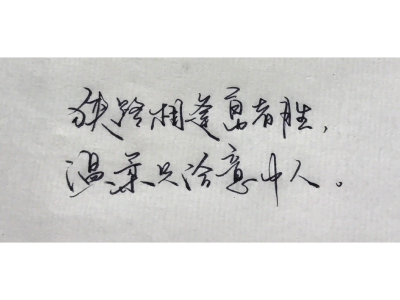 狭路相逢勇者胜,
温柔只给意中人。